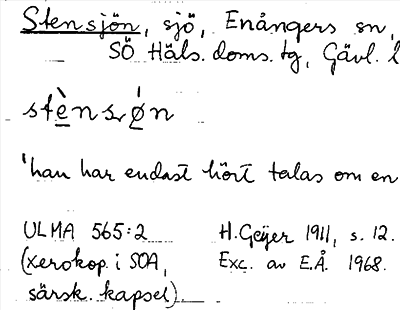 Stensjön, sjö, Enångers sn,
SÖ Häls. doms. tg, Gävl. l
stènsǫ́n
'han har endast hört talas om en
ULMA 565:2
(xerokop. i SOA,
särsk. kapsel)
H. Geijer 1911, s. 12.
Exc. av E.Å. 1968.